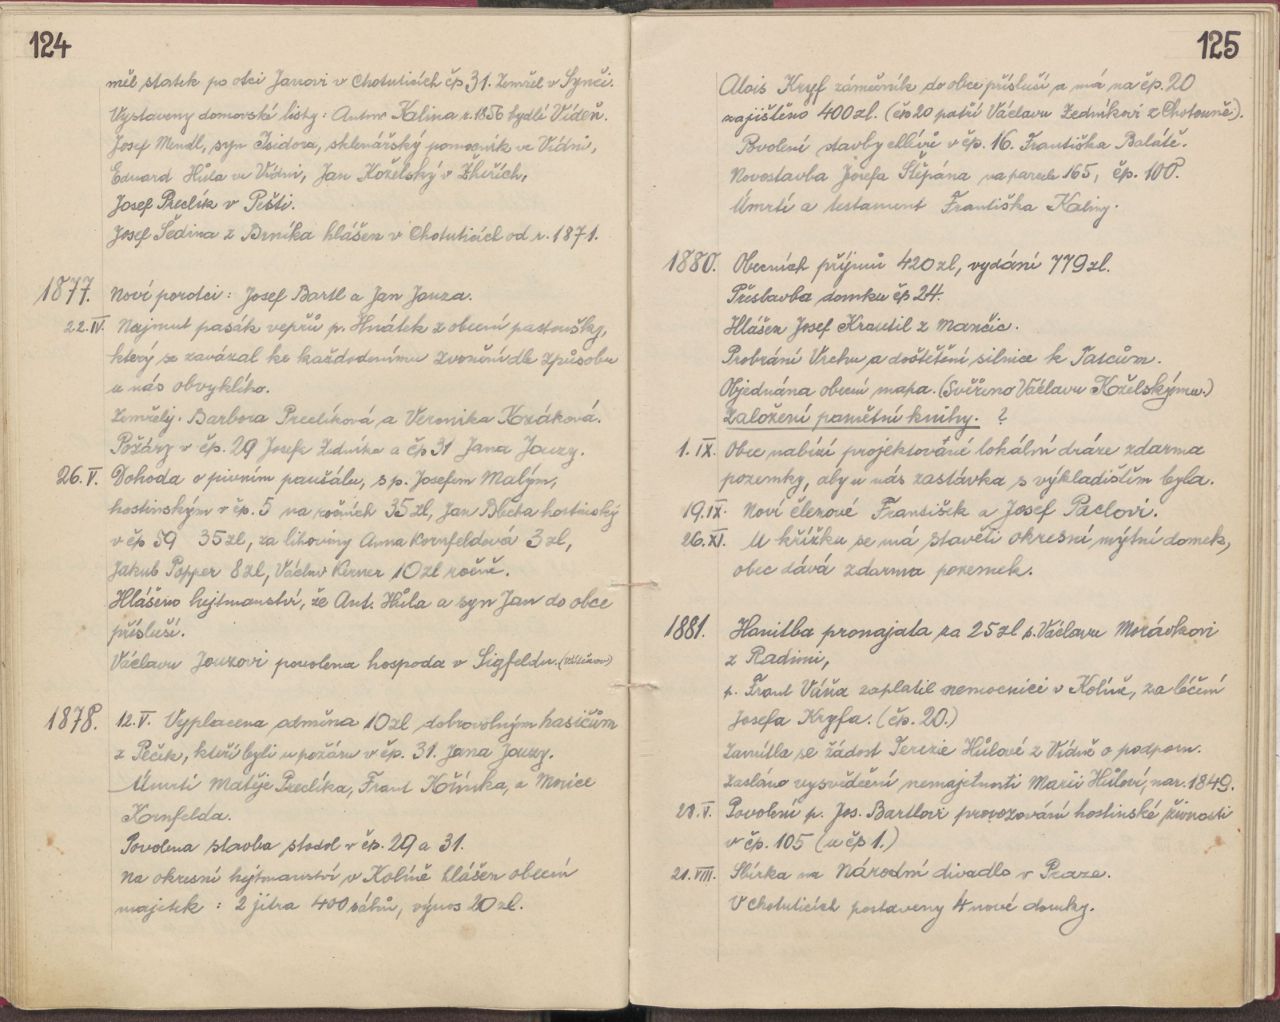 124
měl statek po otci Janovi v Chotuticích čp. 31. Zemřel v Synči.
Vystaveny domovské listy: Antonín Kalina r. 1856 bydlí Vídeň.
Josef Mendl, syn Isidora, sklenářský pomocník ve Vídni,
Eduard Hůla ve Vídni, Jan Koželský v Zhořích,
Josef Preclík v Pešti.
Josef Šedina z Brníka hlášen v Chotuticích od r. 1871.
1877. Noví porotci: Josef Bartl a Jan Jouza.
22. IV. Najmut pasák vepřů p. Hnátek z obecní pastoušky,
který se zavázal ke každodennímu zvonění dle způsobu
u nás obvyklého.
Zemřely: Barbora Preclíková a Veronika Kozáková.
Požáry v čp. 29 Josefa Zedníka a čp 31 Jana Jouzy.
26. V. Dohoda o pivním paušálu, s p. Josefem Malým,
hostinským v čp. 5 na ročních 35 zl, Jan Blecha hostinský
v čp 59 35 zl, za lihoviny Anna Kornfeldová 3 zl,
Jakub Popper 8 zl, Václav Kerner 10 zl ročně.
Hlášeno hejtmanství, že Ant. Hůla a syn Jan do obce
přísluší.
Václavu Jouzovi povolena hospoda v Sigfeldu.
1878. 12. V. Vyplacena odměna 10 zl dobrovolným hasičům
z Peček, kteří byli u požáru v čp. 31. Jana Jouzy.
Úmrtí Matěje Preclíka, Frant Kořínka, a Morice
Kornfelda.
Povolena stavba stodol v čp. 29 a 31.
Na okresní hejtmanství v Kolíně hlášen obecní
majetek : 2 jitra 400 sáhů, výnos 20 zl.
125
Alois Kryf zámečník do obce přísluší a má na čp. 20
zajištěno 400 zl. (čp 20 patří Václavu Zedníkovi z Chotouně).
Povolení stavby v čp. 16. Františka Baláře.
Novostavba Josefa Štěpána na parcele 165, čp. 100.
Úmrtí a testament Františka Kaliny.
1880. Obecních příjmů 420 zl, vydání 779 zl.
Přestavba domku čp 24.
Hlášen Josef Krautil z Mančic.
Probrání Vrchu a doštětění silnice k Tatcům.
Objednána obecní mapa. (Svěřeno Václavu Koželskýmu.)
Založení pamětní knihy. ?
1. IX. Obec nabízí projektované lokální dráze zdarma
pozemky, aby u nás zastávka s výkladištěm byla.
19. IX. Noví členové František a Josef Paclovi.
26. XI. U křížku se má stavěti okresní mýtní domek,
obec dává zdarma pozemek.
1881. Honitba pronajata za 25 zl p. Václavu Morávkovi
z Radimi,
p. Frant Váňa zaplatil nemocnici v Kolíně, za léčení
Josefa Kryfa. (čp. 20.)
Zamítla se žádost Terezie Hůlové z Vídně o podporu.
Zasláno vysvědčení nemajetnosti Marii Hůlové, nar. 1849.
28. V. Povolení p. Jos. Bartlovi provozování hostinské živnosti
v čp. 105 (u čp 1.)
21. VIII. Sbírka na Národní divadlo v Praze.
V Chotuticích postaveny 4 nové domky.